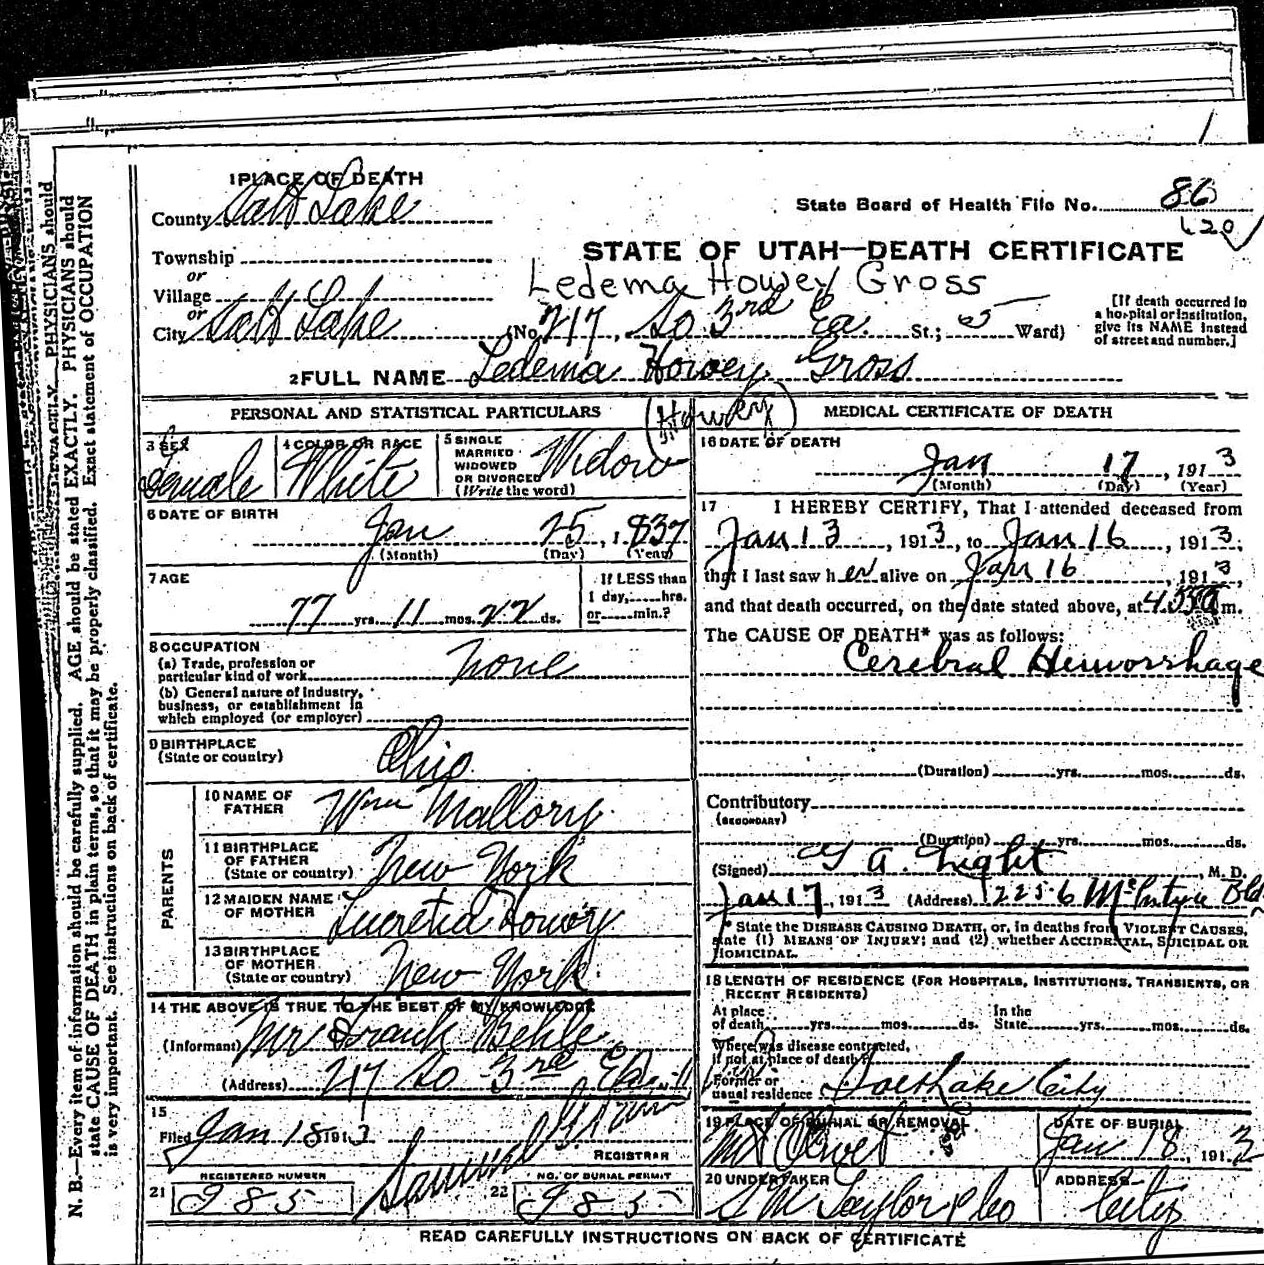 1 PLACE OF DEATH
County Salt Lake
State Board of Health File No. 86
120
Township
STATE OF UTAH—DEATH CERTIFICATE
or
Village
Ledema Howey Gross
or
City Salt Lake (No. 217, So 3rd Ea. St.; 5 Ward)
[If death occurred in a hospital or institution, give its NAME instead of street and number.]
2 FULL NAME Ledema Howey Gross
PERSONAL AND STATISTICAL PARTICULARS
3 SEX Female
4 COLOR OR RACE White
5 SINGLE MARRIED WIDOWED OR DIVORCED (Write the word) Widow
6 DATE OF BIRTH
Jan 25, 1837
(Month) (Day) (Year)
7 AGE
77 yrs. 11 mos. 22 ds.
If LESS than 1 day, hrs. or min.?
8 OCCUPATION
(a) Trade, profession or particular kind of work None
(b) General nature of industry, business, or establishment in which employed (or employer)
9 BIRTHPLACE (State or country) Ohio
PARENTS
10 NAME OF FATHER Wm Mallory
11 BIRTHPLACE OF FATHER (State or country) New York
12 MAIDEN NAME OF MOTHER Lucretia Howey
13 BIRTHPLACE OF MOTHER (State or country) New York
14 THE ABOVE IS TRUE TO THE BEST OF MY KNOWLEDGE
(Informant) Mr Frank Behle
(Address) 217 So 3rd Ea
15
Filed Jan 18 1913
REGISTRAR
REGISTERED NUMBER
21 985
NO. OF BURIAL PERMIT
22 985
MEDICAL CERTIFICATE OF DEATH
16 DATE OF DEATH
Jan 17, 1913
(Month) (Day) (Year)
17 I HEREBY CERTIFY, That I attended deceased from
Jan 13, 1913, to Jan 16, 1913,
that I last saw her alive on Jan 16, 1913,
and that death occurred, on the date stated above, at m.
The CAUSE OF DEATH* was as follows:
Cerebral Hemorrhage
(Duration) yrs. mos. ds.
Contributory
(SECONDARY)
(Duration) yrs. mos. ds.
(Signed) , M. D.
Jan 17, 1913 (Address) McIntyre Bld
* State the DISEASE CAUSING DEATH, or, in deaths from VIOLENT CAUSES, state (1) MEANS OF INJURY; and (2) whether ACCIDENTAL, SUICIDAL OR HOMICIDAL.
18 LENGTH OF RESIDENCE (FOR HOSPITALS, INSTITUTIONS, TRANSIENTS, OR RECENT RESIDENTS)
At place of death yrs. mos. ds. In the State yrs. mos. ds.
Where was disease contracted, if not at place of death?
Former or usual residence Salt Lake City
19 PLACE OF BURIAL OR REMOVAL Mt Olivet
DATE OF BURIAL Jan 18, 1913
20 UNDERTAKER S M Taylor & Co
ADDRESS City
READ CAREFULLY INSTRUCTIONS ON BACK OF CERTIFICATE
N. B.—Every item of information should be carefully supplied. AGE should be stated EXACTLY. PHYSICIANS should
state CAUSE OF DEATH in plain terms, so that it may be properly classified. Exact statement of OCCUPATION
is very important. See instructions on back of certificate.